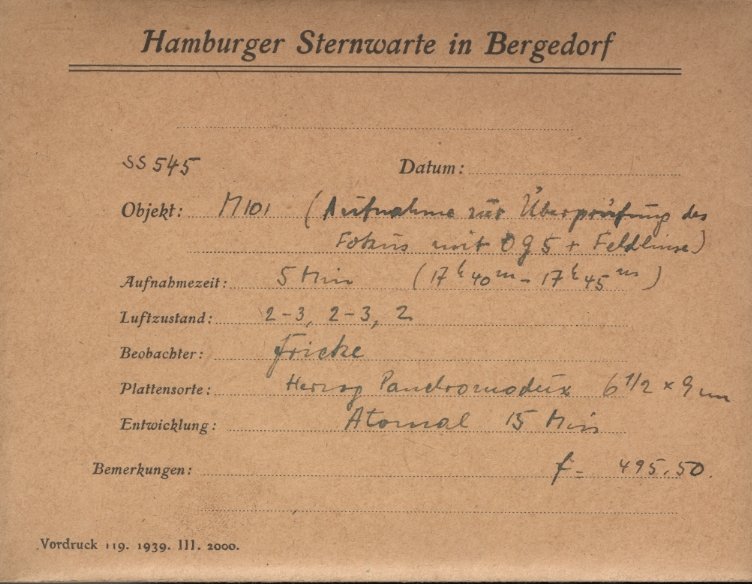 Hamburger Sternwarte in Bergedorf
SS 545 Datum:
Objekt: M101 (Aufnahme zur Überprüfung des
Fokus mit OG5 + Feldlinse)
Aufnahmezeit: 5 Min (17h 40m - 17h 45m)
Luftzustand: 2-3, 2-3, 2
Beobachter: Fricke
Plattensorte: Herzog Pandromodux 6 1/2 x 9 cm
Entwicklung: Atomal 15 Min
Bemerkungen: f = 495.50.
Vordruck 119. 1939. III. 2000.